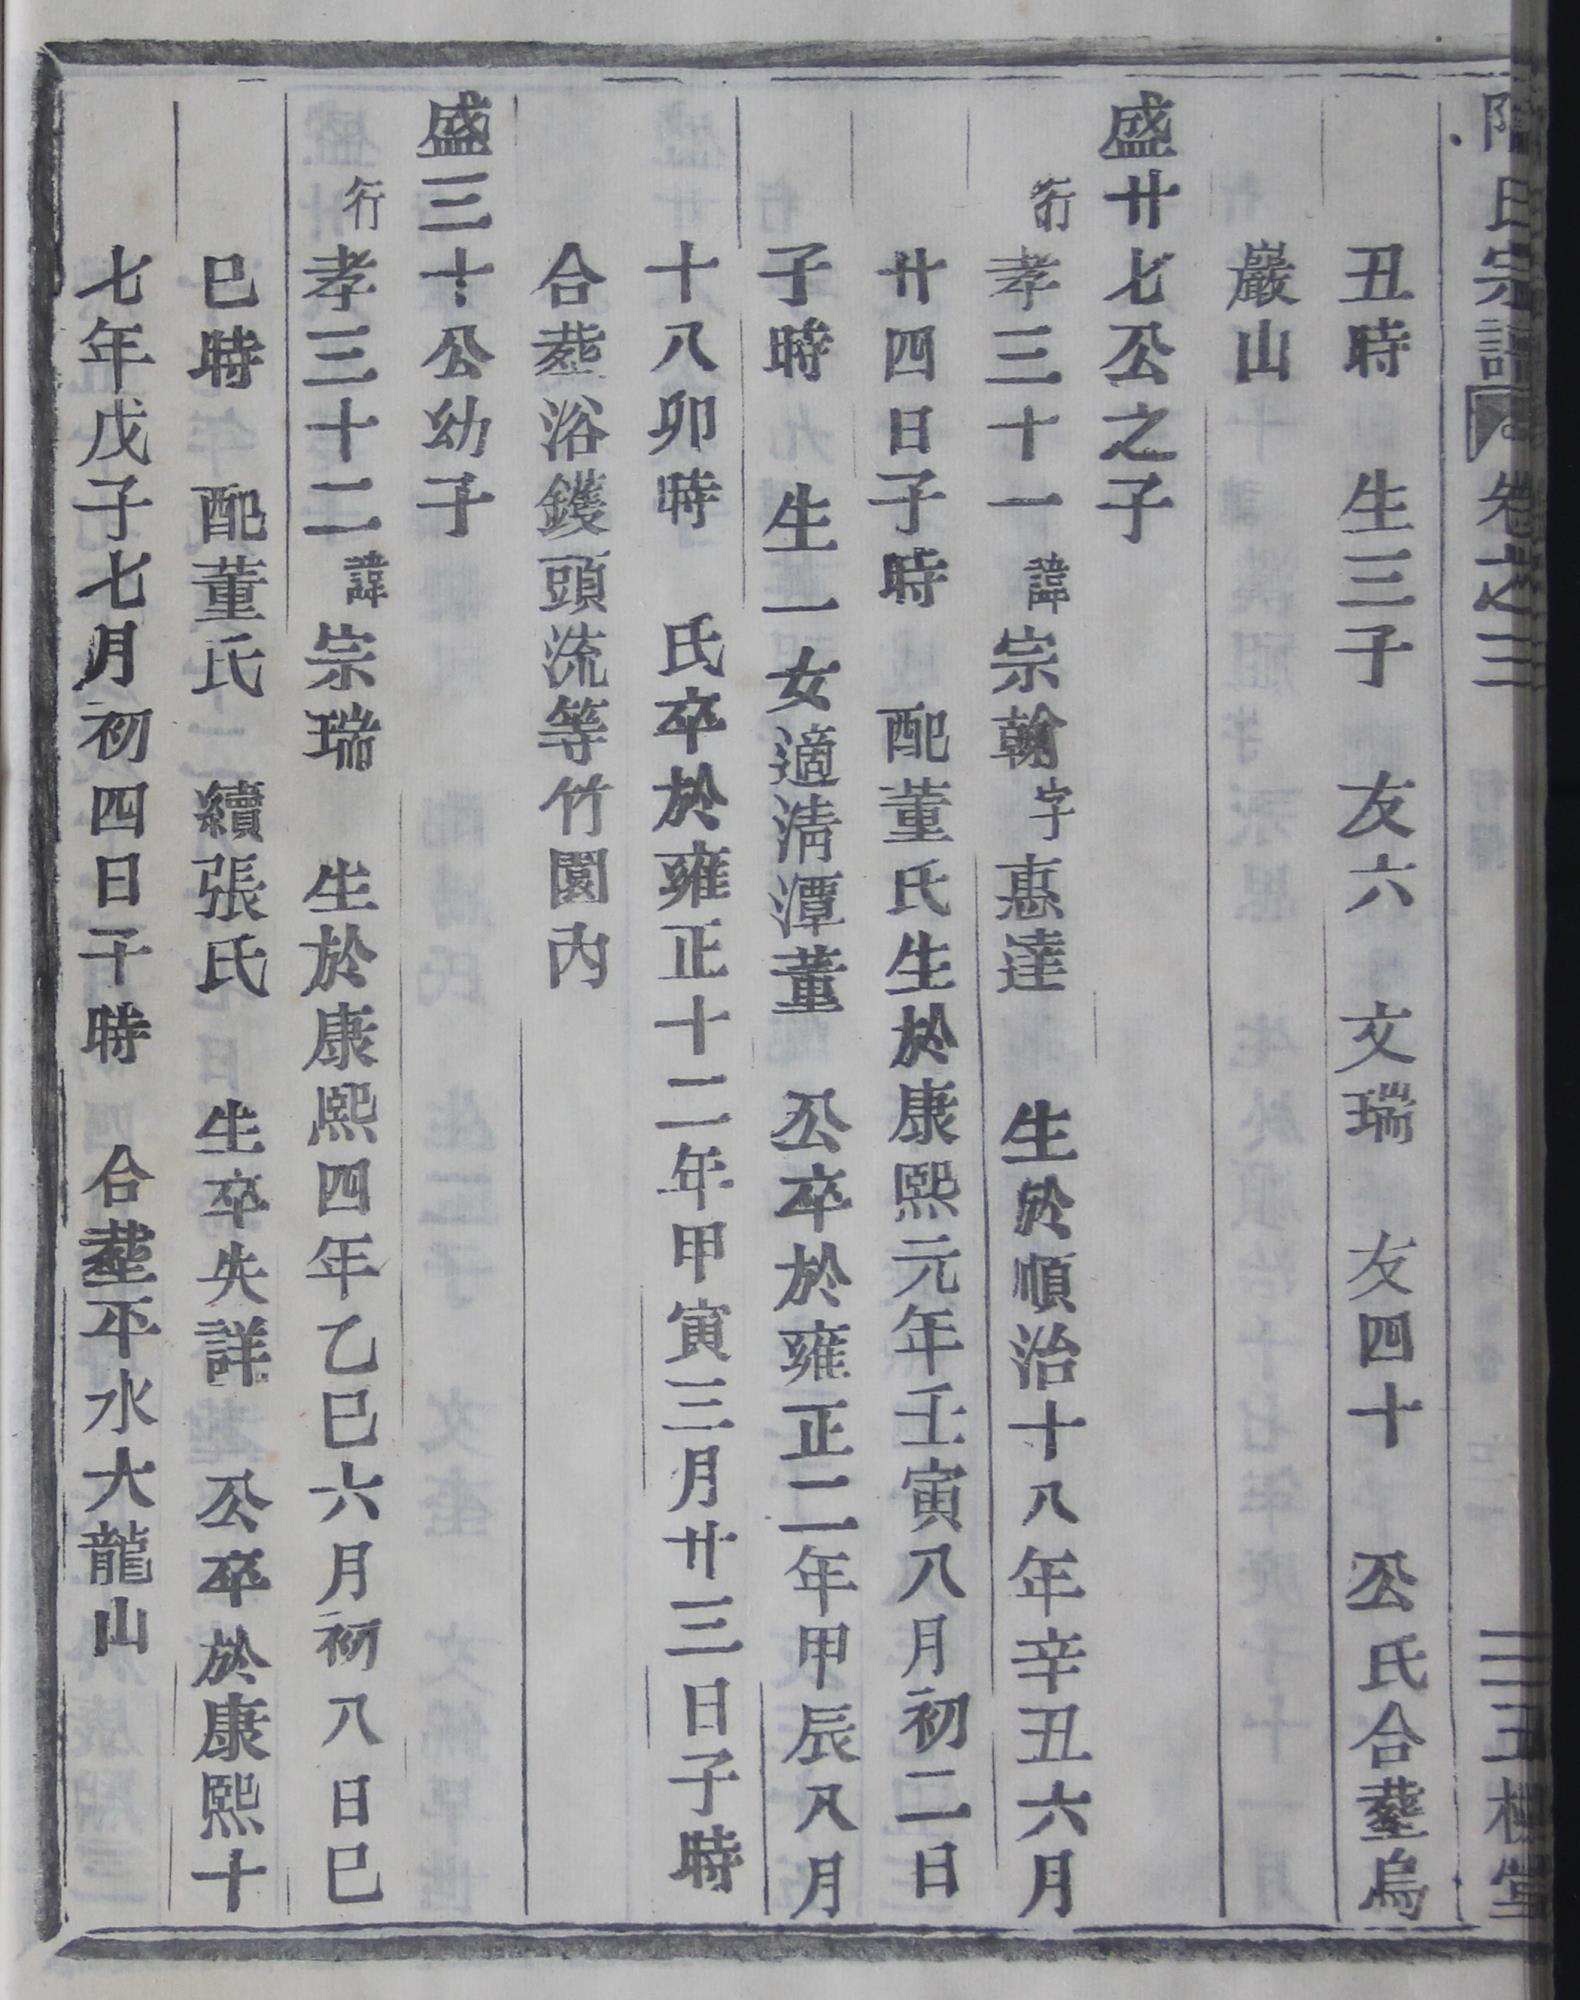 氏宗譜 卷之三 三五桂堂
丑時 生三子 友六 文瑞 友四十 公氏合塟烏
巖山
盛廿七公之子
行孝三十一諱宗翰字惠達 生於順治十八年辛丑六月
廿四日子時 配董氏生於康熙元年壬寅八月初二日
子時 生一女適淸潭董 公卒於雍正二年甲辰八月
十八卯時 氏卒於雍正十二年甲寅三月廿三日子時
合塟浴鑊頭流等竹園內
盛三十公幼子
行孝三十二諱宗瑞 生於康熙四年乙巳六月初八日巳
巳時 配董氏 續張氏 生卒失詳 公卒於康熙十
七年戊子七月初四日干時 合塟平水大龍山